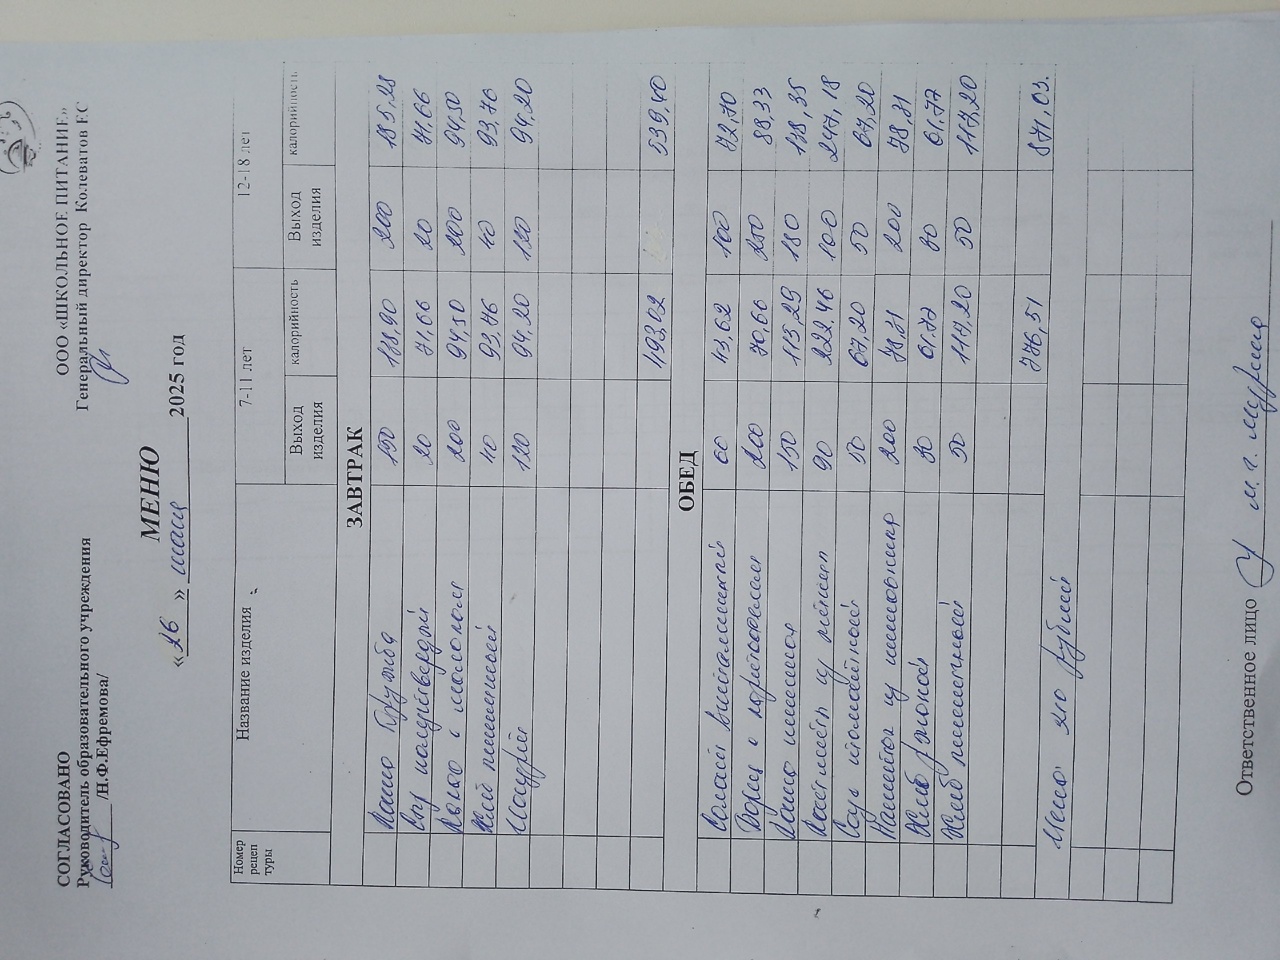 СОГЛАСОВАНО
Руководитель образовательного учреждения
/Н.Ф.Ефремова/
ООО «ШКОЛЬНОЕ ПИТАНИЕ»
Генеральный директор Колеватов ЕС
МЕНЮ
«26» 2025 год
Номер рецептуры Название изделия 7-11 лет 12-18 лет
Выход изделия калорийность Выход изделия калорийность
ЗАВТРАК
Каша Дружба 150 138,90 200 185,28
Сыр полутвердый 20 71,66 20 71,66
Какао с молоком 200 94,50 200 94,50
Хлеб пшеничный 40 93,76 40 93,76
120 94,20 120 94,20
493,02 539,40
ОБЕД
Салат витаминный 60 43,62 100 72,70
Борщ с картофелем 200 70,66 250 88,33
Каша 150 113,29 180 138,35
90 222,46 100 247,18
Соус томатный 50 67,20 50 67,20
Напиток из шиповника 200 78,31 200 78,31
Хлеб ржаной 30 61,77 30 61,77
Хлеб пшеничный 50 117,20 50 117,20
776,51 871,03.
Цена: 210 рублей
Ответственное лицо